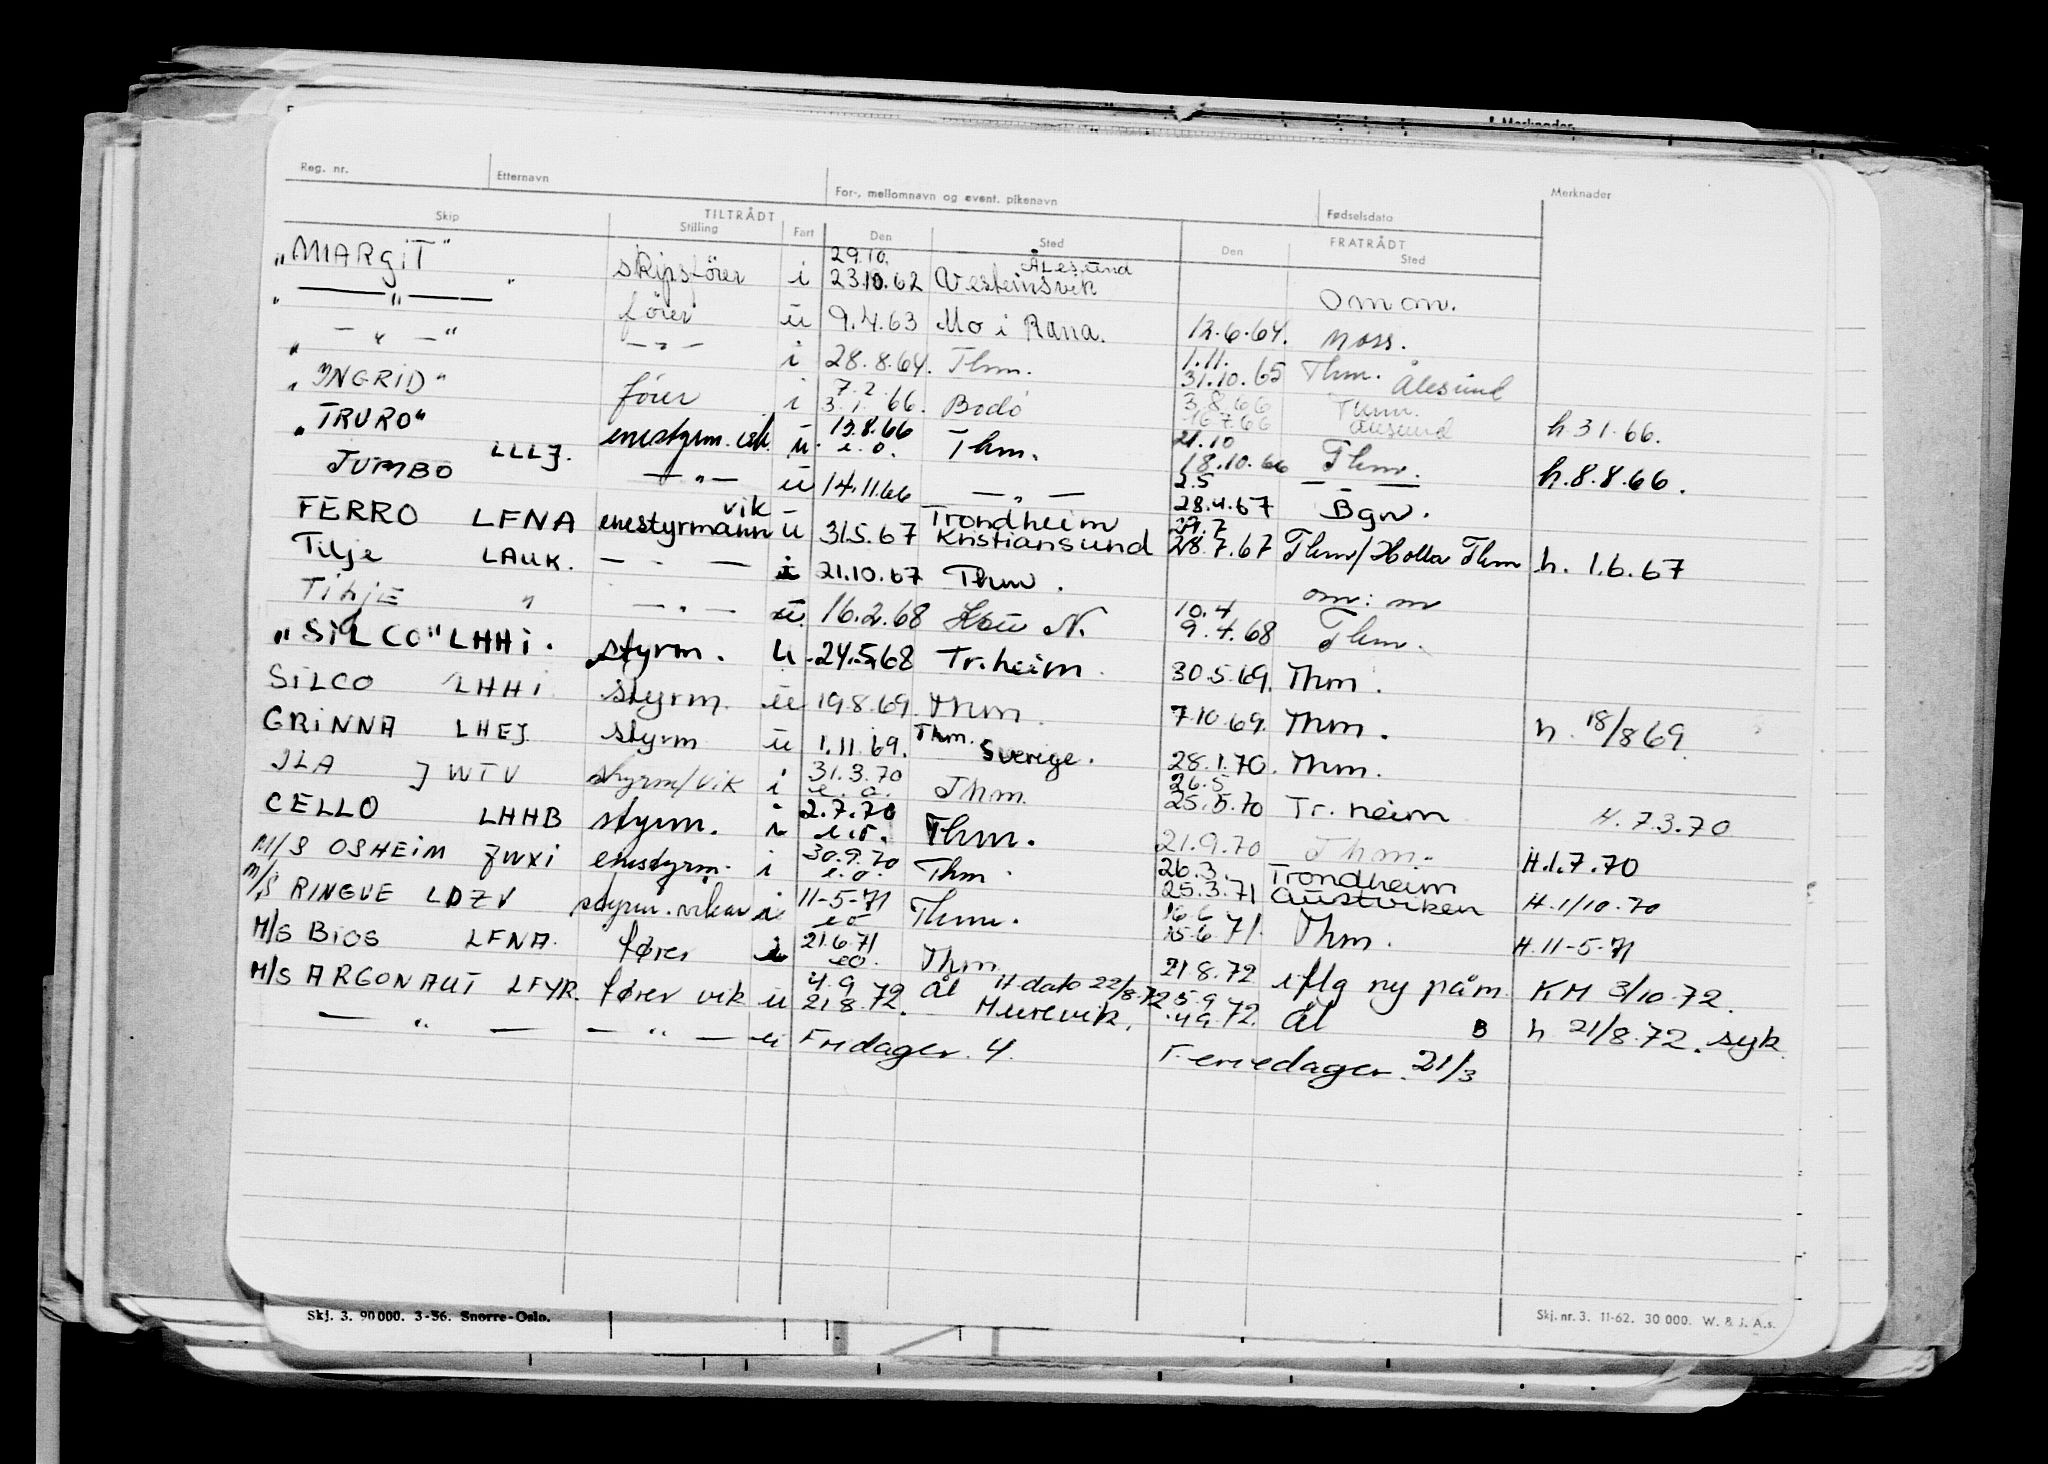 Merknader
Reg. nr. Etternavn For-, mellomnavn og event. pikenavn Fødselsdato Merknader
Skip TILTRÅDT Stilling Fart Den Sted Den FRATRÅDT Sted
"MARGIT" skipsfører i 29.10. 23.10.62 Ålesund Vesteinsvik Omm.
" — " — " fører ü 9.4.63 Mo i Rana. 12.6.64. Moss.
" — " — " — " — i 28.8.64. Thm. 1.11. 31.10.65 Thm. Ålesund
"INGRID" fører i 7.2. 3.1.66. Bodö 3.8.66 16.7.66 Thm. Ålesund h.31.66.
"TRURO" LLLJ. enestyrm. vik. ü 13.8.66 e.o. Thm. 21.10 18.10.66 Thm. h.8.8.66.
JUMBO — " — ü 14.11.66 — " — 2.5 28.4.67 Bgn.
FERRO LFNA enestyrmann vik ü 31.5.67 Trondheim Kristiansund 29.7 28.7.67 Thm/Holla Thm h. 1.6.67
Tilje LAUK. — " — i 21.10.67 Thm. om: m
Tilje " — " — ü 16.2.68 N. 10.4 9.4.68 Thm.
"SILCO" LHHi. styrm. u. 24.5.68 Tr.heim. 30.5.69. Thm.
SILCO LHHi styrm. ü 19.8.69 Thm. 7.10.69. Thm. h. 18/8 69
GRINNA LHEJ styrm ü 1.11.69. Thm. Sverige. 28.1.70. Thm.
ILA JWTV styrm/vik i 31.3.70 e.o. Thm. 26.5 25.5.70 Tr.heim H. 7.3.70
CELLO LHHB styrm. i 2.7.70 e.o. Thm. 21.9.70 Thm. H.1.7.70
M/S OSHEIM JWXI enestyrm. i 30.9.70 e.o. Thm. 26.3. 25.3.71 Trondheim Austviken H.1/10.70
M/S RINGVE LDZV styrm. vikar i 11-5-71 eo Thm. 16.6 15.6 71. Thm. H.11-5-71
M/S BIOS LFNA. fører i 21.6.71 eo. Thm 21.8.72 iflg ny påm. KM 3/10.72.
M/S ARGONAUT LFYR. fører vik ü 4.9 21.8.72. Ål H.dato 22/8.72 Murevik. 5.9 4.9.72. Ål B h 21/8.72. syk
— " — — " — ü Fridager. 4. Feriedager. 21/3
Skj. 3. 90 000. 3-56. Snorre-Oslo. Skj. nr. 3. 11-62. 30 000. W. & J. A.s.